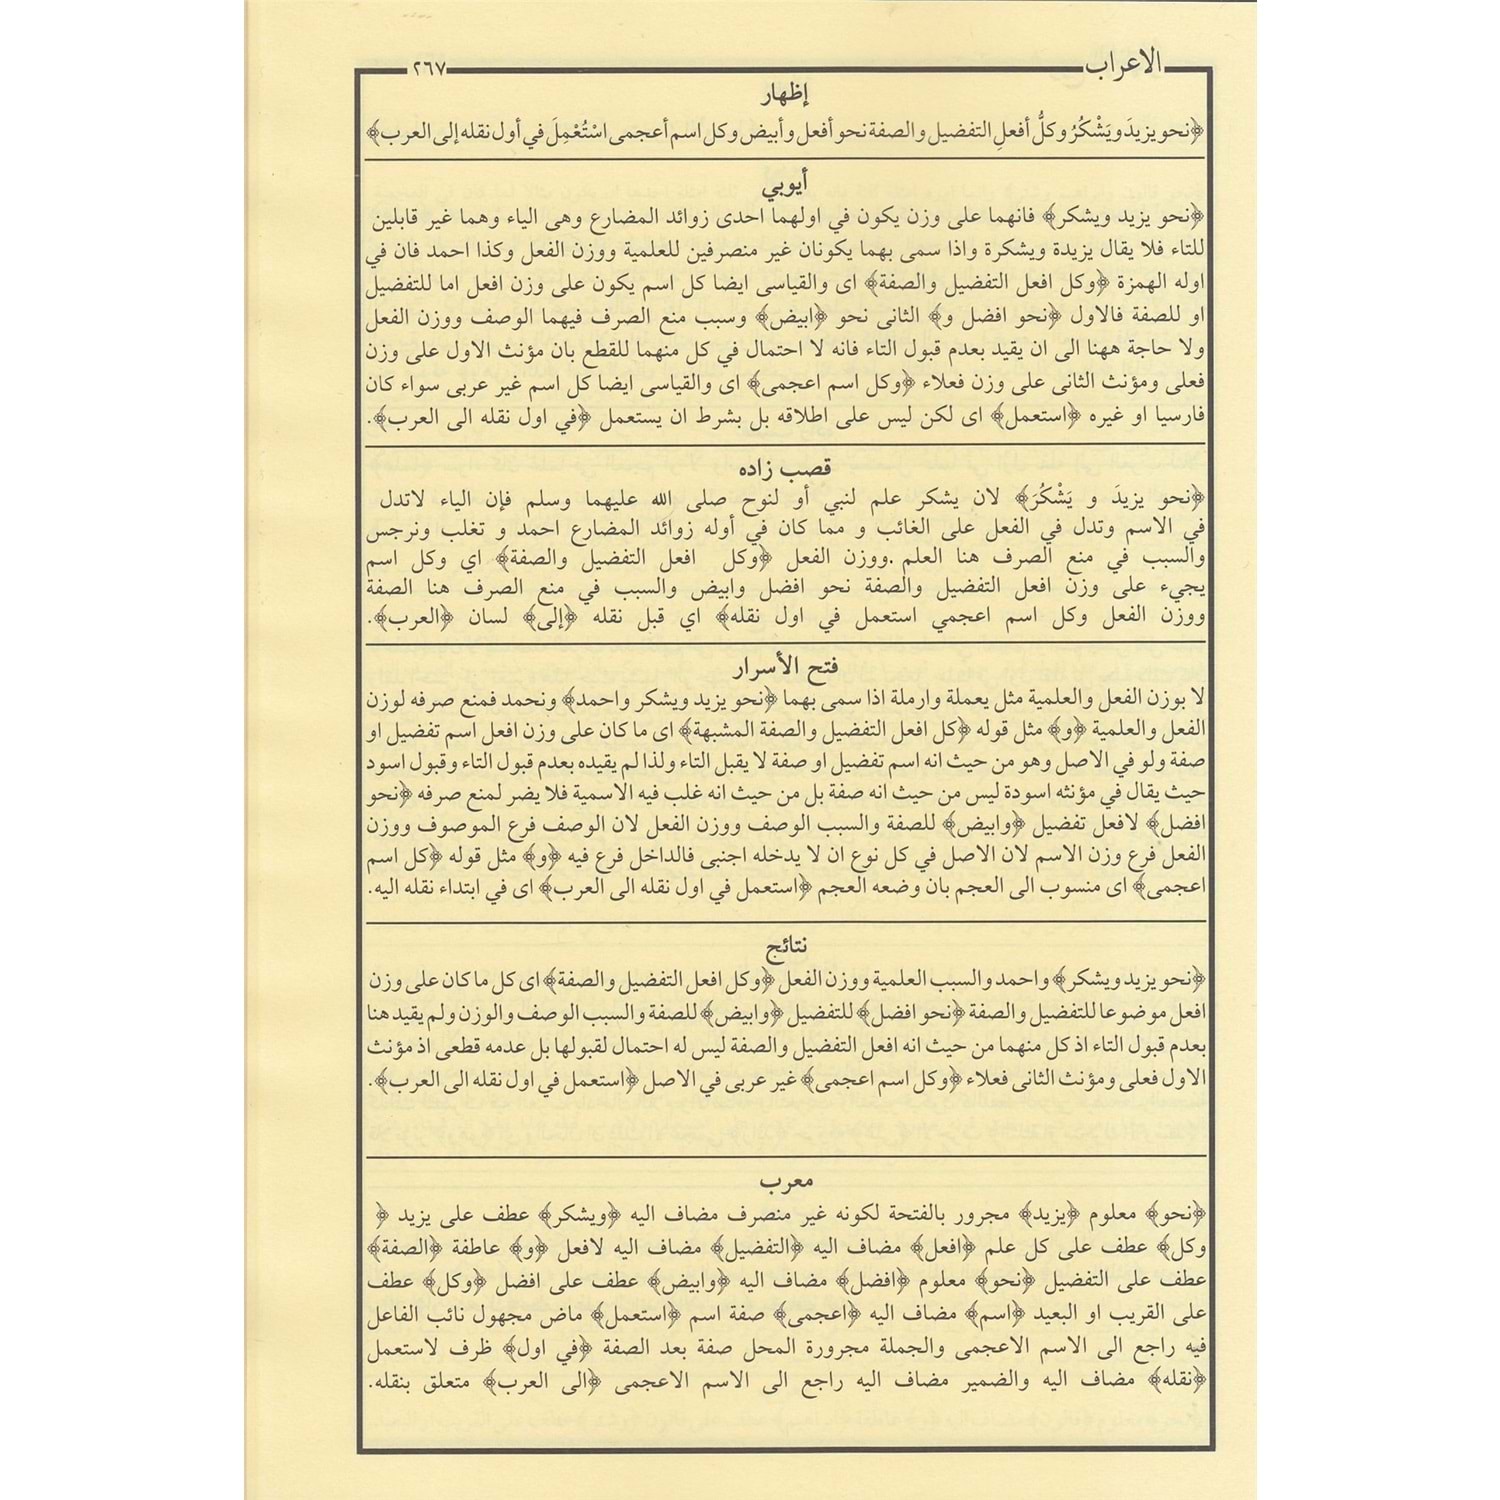 الاعراب
٢٦٧
إظهار
﴿نحو يزيدَ ويَشْكُرُ وكلُّ أفعلِ التفضيل والصفة نحو أفعل وأبيض وكل اسم أعجمى اسْتُعْمِلَ في أول نقله إلى العرب﴾
أيوبي
﴿نحو يزيد ويشكر﴾ فانهما على وزن يكون في اولهما احدى زوائد المضارع وهى الياء وهما غير قابلين
للتاء فلا يقال يزيدة ويشكرة واذا سمى بهما يكونان غير منصرفين للعلمية ووزن الفعل وكذا احمد فان في
اوله الهمزة ﴿وكل افعل التفضيل والصفة﴾ اى والقياسى ايضا كل اسم يكون على وزن افعل اما للتفضيل
او للصفة فالاول ﴿نحو افضل و﴾ الثانى نحو ﴿ابيض﴾ وسبب منع الصرف فيهما الوصف ووزن الفعل
ولا حاجة ههنا الى ان يقيد بعدم قبول التاء فانه لا احتمال في كل منهما للقطع بان مؤنث الاول على وزن
فعلى ومؤنث الثانى على وزن فعلاء ﴿وكل اسم اعجمى﴾ اى والقياسى ايضا كل اسم غير عربى سواء كان
فارسيا او غيره ﴿استعمل﴾ اى لكن ليس على اطلاقه بل بشرط ان يستعمل ﴿في اول نقله الى العرب﴾.
قصب زاده
﴿نحو يزيدَ و يَشْكُرَ﴾ لان يشكر علم لنبي أو لنوح صلى الله عليهما وسلم فإن الياء لاتدل
في الاسم وتدل في الفعل على الغائب و مما كان في أوله زوائد المضارع احمد و تغلب ونرجس
والسبب في منع الصرف هنا العلم .ووزن الفعل ﴿وكل افعل التفضيل والصفة﴾ اي وكل اسم
يجيء على وزن افعل التفضيل والصفة نحو افضل وابيض والسبب في منع الصرف هنا الصفة
ووزن الفعل وكل اسم اعجمي استعمل في اول نقله﴾ اي قبل نقله ﴿إلى﴾ لسان ﴿العرب﴾.
فتح الأسرار
لا بوزن الفعل والعلمية مثل يعملة وارملة اذا سمى بهما ﴿نحو يزيد ويشكر واحمد﴾ ونحمد فمنع صرفه لوزن
الفعل والعلمية ﴿و﴾ مثل قوله ﴿كل افعل التفضيل والصفة المشبهة﴾ اى ما كان على وزن افعل اسم تفضيل او
صفة ولو في الاصل وهو من حيث انه اسم تفضيل او صفة لا يقبل التاء ولذا لم يقيده بعدم قبول التاء وقبول اسود
حيث يقال في مؤنثه اسودة ليس من حيث انه صفة بل من حيث انه غلب فيه الاسمية فلا يضر لمنع صرفه ﴿نحو
افضل﴾ لافعل تفضيل ﴿وابيض﴾ للصفة والسبب الوصف ووزن الفعل لان الوصف فرع الموصوف ووزن
الفعل فرع وزن الاسم لان الاصل في كل نوع ان لا يدخله اجنبى فالداخل فرع فيه ﴿و﴾ مثل قوله ﴿كل اسم
اعجمى﴾ اى منسوب الى العجم بان وضعه العجم ﴿استعمل في اول نقله الى العرب﴾ اى في ابتداء نقله اليه.
نتائج
﴿نحو يزيد ويشكر﴾ واحمد والسبب العلمية ووزن الفعل ﴿وكل افعل التفضيل والصفة﴾ اى كل ما كان على وزن
افعل موضوعا للتفضيل والصفة ﴿نحو افضل﴾ للتفضيل ﴿وابيض﴾ للصفة والسبب الوصف والوزن ولم يقيد هنا
بعدم قبول التاء اذ كل منهما من حيث انه افعل التفضيل والصفة ليس له احتمال لقبولها بل عدمه قطعى اذ مؤنث
الاول فعلى ومؤنث الثانى فعلاء ﴿وكل اسم اعجمى﴾ غير عربى في الاصل ﴿استعمل في اول نقله الى العرب﴾.
معرب
﴿نحو﴾ معلوم ﴿يزيد﴾ مجرور بالفتحة لكونه غير منصرف مضاف اليه ﴿ويشكر﴾ عطف على يزيد ﴿
وكل﴾ عطف على كل علم ﴿افعل﴾ مضاف اليه ﴿التفضيل﴾ مضاف اليه لافعل ﴿و﴾ عاطفة ﴿الصفة﴾
عطف على التفضيل ﴿نحو﴾ معلوم ﴿افضل﴾ مضاف اليه ﴿وابيض﴾ عطف على افضل ﴿وكل﴾ عطف
على القريب او البعيد ﴿اسم﴾ مضاف اليه ﴿اعجمى﴾ صفة اسم ﴿استعمل﴾ ماض مجهول نائب الفاعل
فيه راجع الى الاسم الاعجمى والجملة مجرورة المحل صفة بعد الصفة ﴿في اول﴾ ظرف لاستعمل
﴿نقله﴾ مضاف اليه والضمير مضاف اليه راجع الى الاسم الاعجمى ﴿الى العرب﴾ متعلق بنقله.